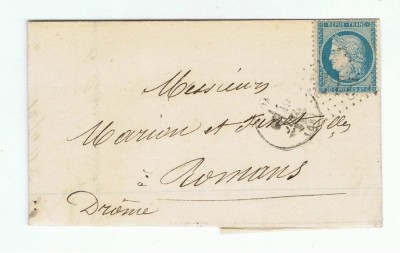 REPUB. FRANC.
Messieurs
Marion et
à Romans
Drôme